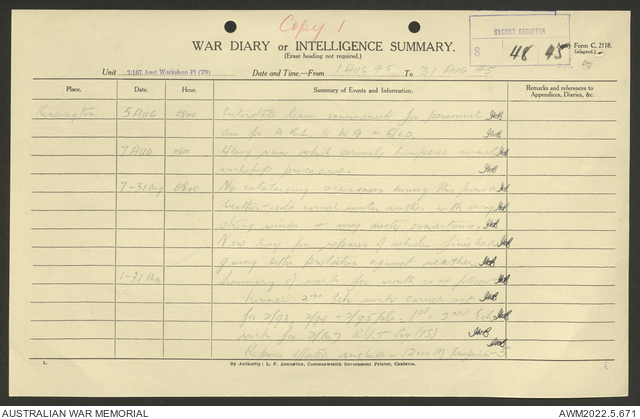 Copy 1
WAR DIARY or INTELLIGENCE SUMMARY.
(Erase heading not required.)
SECRET REGISTER
S 48 45
Form C. 2118.
(Adapted.)
Unit 2/167 Amt Workshop Pl (TS) Date and Time.—From 1 AUG 45 To 31 AUG 45
Place. Date. Hour. Summary of Events and Information. Remarks and references to Appendices, Diaries, &c.
5 AUG 0800 Interstate leave commenced for personnel
due for A. Rob. to WA & QLD.
7 AUG 0800 Heavy rain which seriously hampered
workshop procedure.
7-31 Aug 0800 No outstanding occurrences during this period
Weather - cold normal winter weather with very
strong winds & very dusty conditions.
New bay for repairs of vehicles finished
giving better protection against weather.
1-31 Aug Summary of work for month is as follows
2nd Ech work carried out
for 2/93 2/94 & 2/95 Pls. 1st & 2nd Ech
work for 2/167 Coy (TS).
Repairs effected include - 12
L. By Authority: L. F. Johnston, Commonwealth Government Printer, Canberra.
AUSTRALIAN WAR MEMORIAL AWM2022.5.671